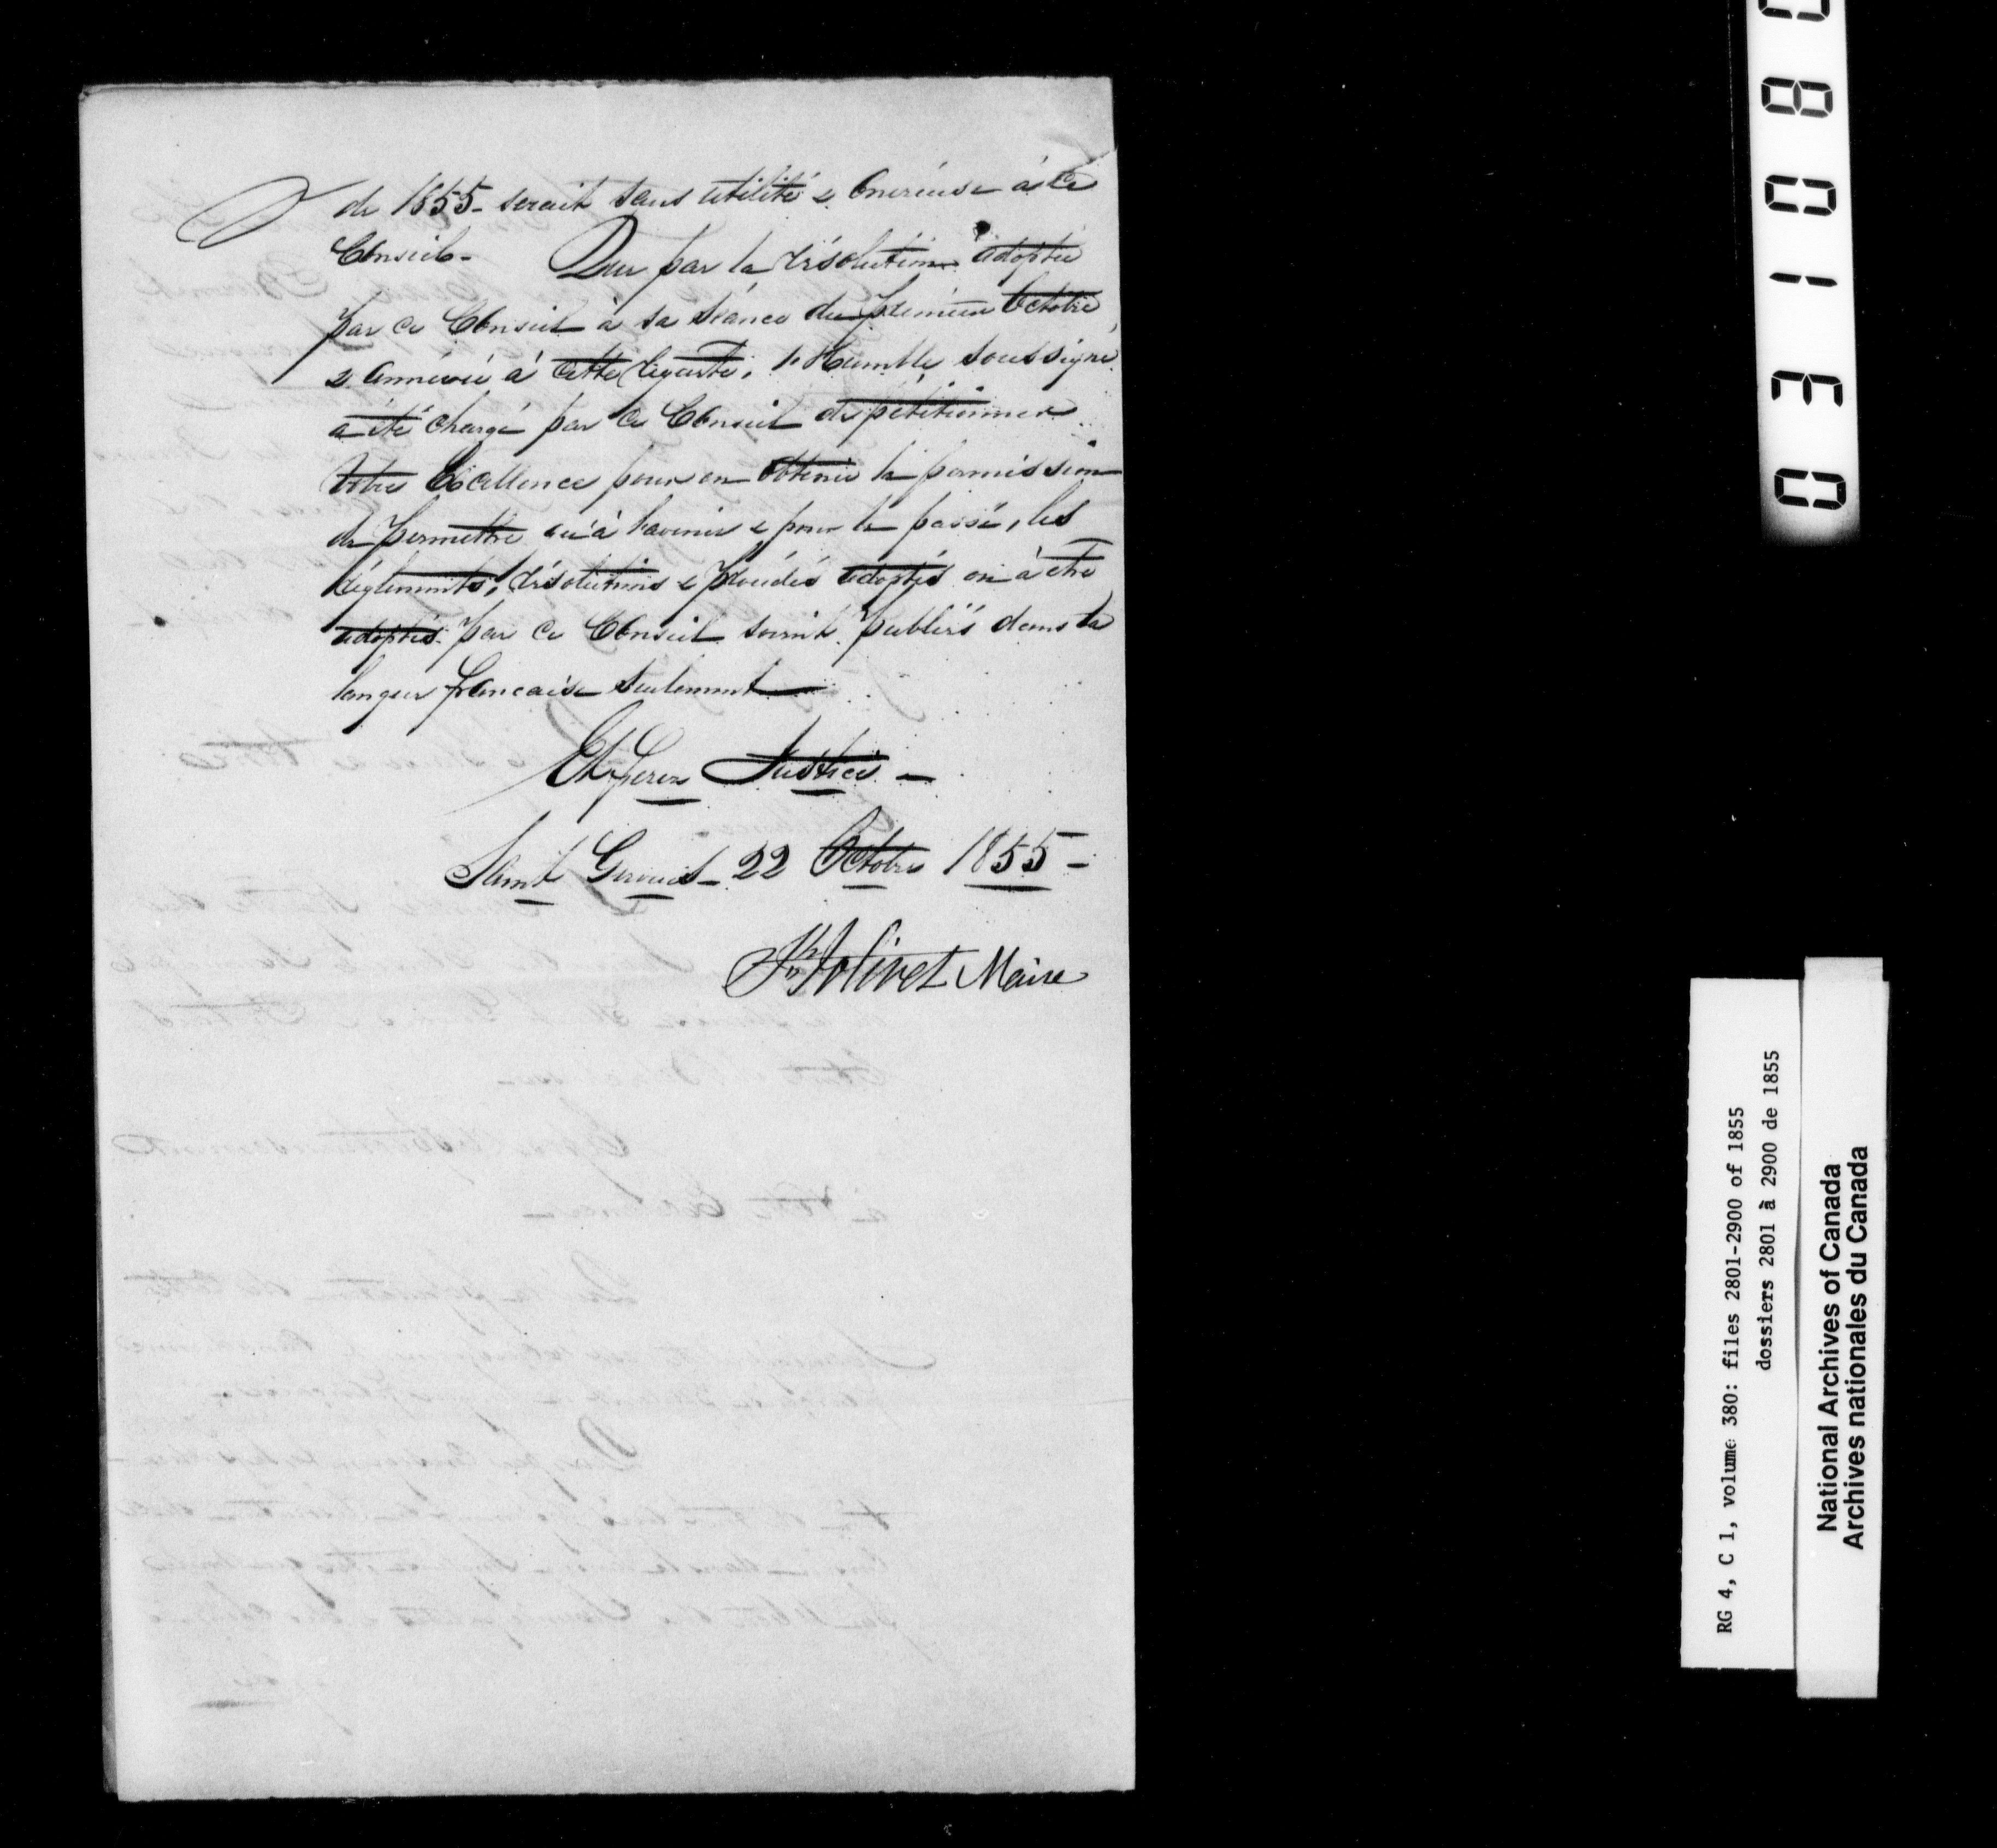 de 1855 - serait sans utilité & onereuse à ce
Conseil - Que par la résolution adoptée
par ce Conseil à sa séance du premier Octobre
& annexée à cette requête, l'Humble soussigné
a été chargé par ce Conseil de pétitionner
Votre Excellence pour en obtenir la permission
de permettre qu'à l'avenir & pour le passé, les
règlements, résolutions & procédés adoptés ou à être
adoptés par ce Conseil soient publiés dans la
langue francaise seulement
Et ferez Justice -
Saint Gervais - 22 Octobre 1855 -
Jolivet Maire
031080
RG 4, C 1, volume 380: files 2801-2900 of 1855
dossiers 2801 à 2900 de 1855
National Archives of Canada
Archives nationales du Canada